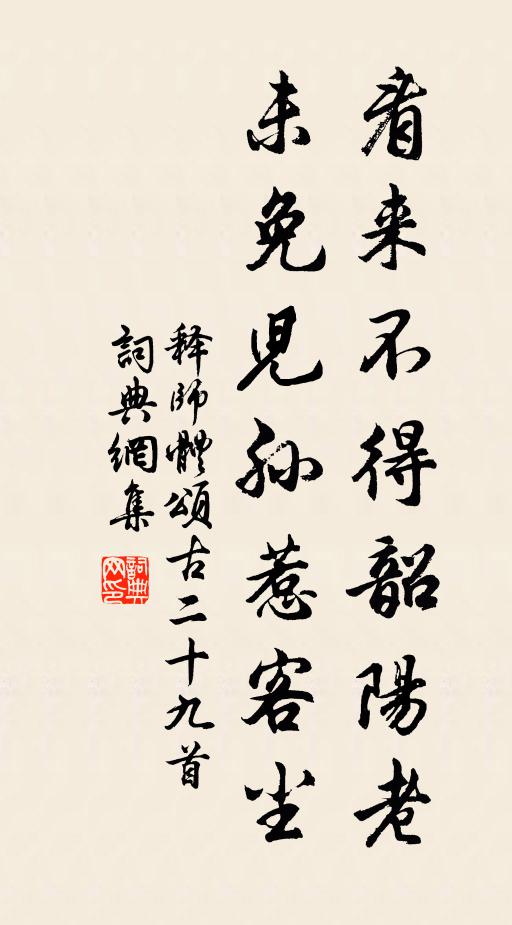 看来不得韶陽老
未免児孫惹客尘
释師體頌古二十九首
詞典網集
詞典网印